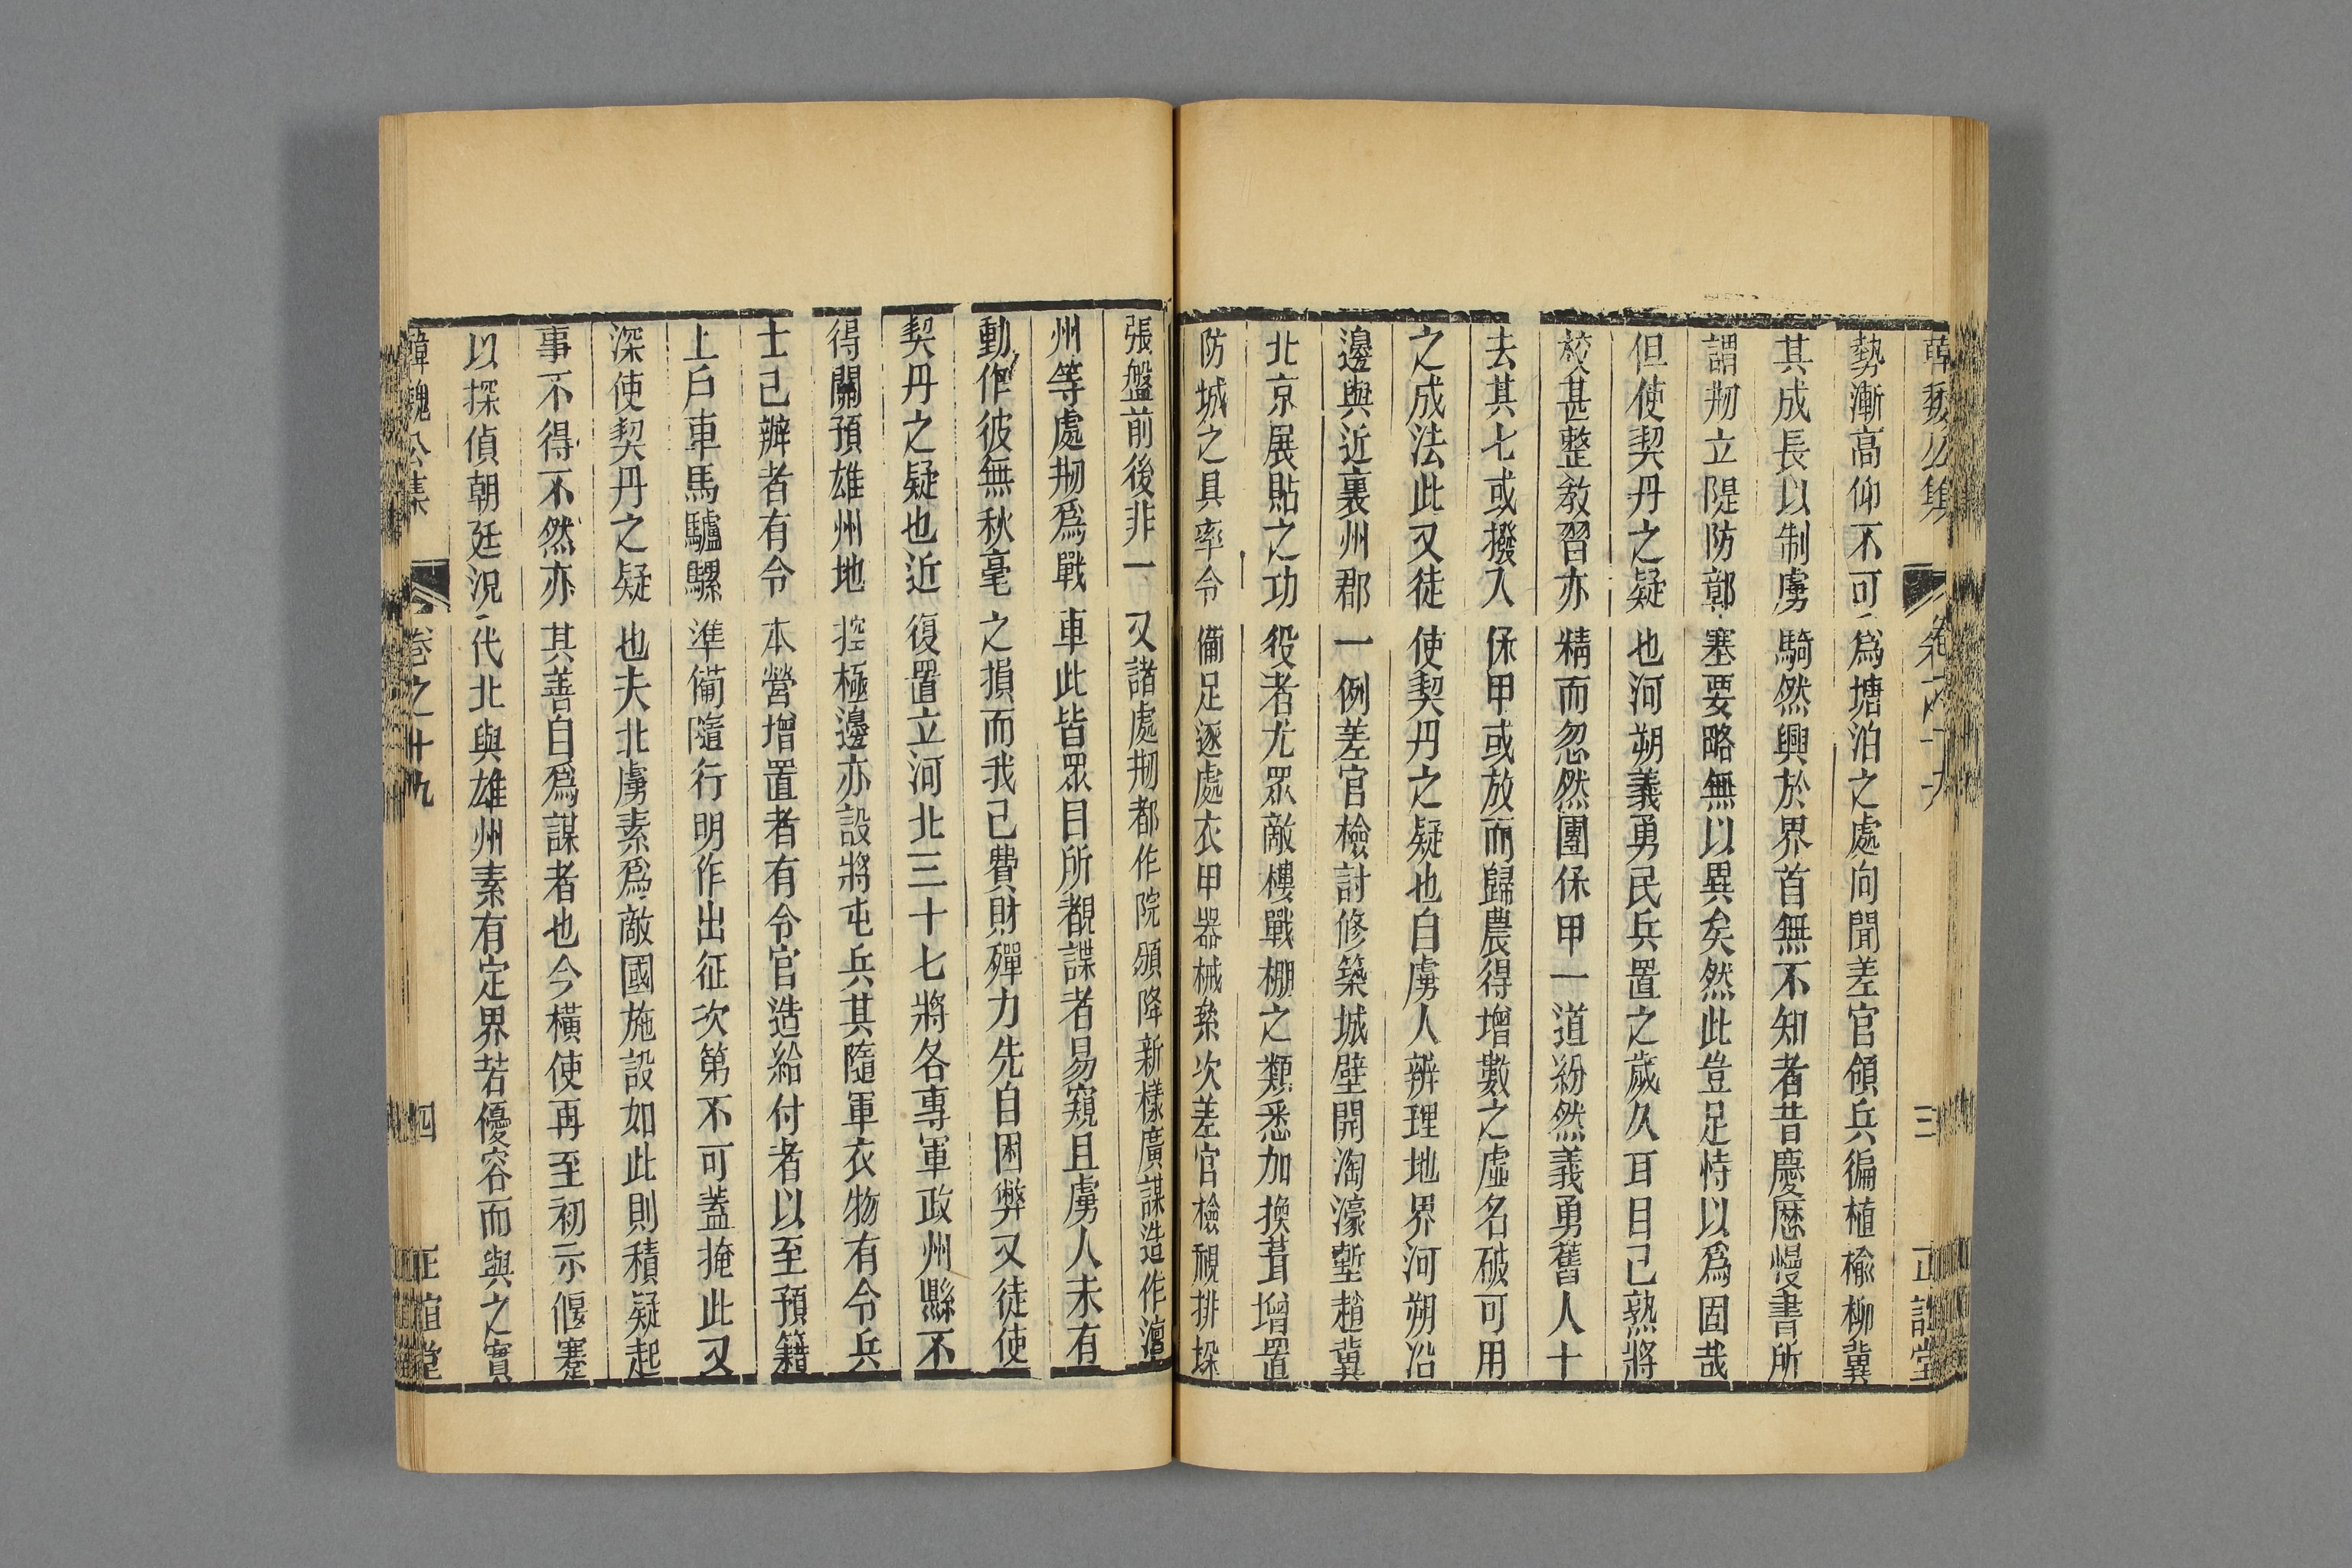 韓魏公集 卷之十九 三 正誼堂
勢漸高仰不可爲塘泊之處向聞差官領兵徧植榆柳冀
其成長以制虜騎然興於界首無不知者昔慶歷慢書所
謂剏立隄防鄣塞要略無以異矣然此豈足恃以爲固哉
但使契丹之疑也河朔義勇民兵置之歲久耳目已熟將
校甚整教習亦精而忽然團保甲一道紛然義勇舊人十
去其七或撥入保甲或放而歸農得增數之虛名破可用
之成法此又徒使契丹之疑也自虜人辨理地界河朔沿
邊與近裏州郡一例差官檢討修築城壁開淘濠塹趙冀
北京展貼之功役者尤眾敵樓戰棚之類悉加換葺增置
防城之具率令備足逐處衣甲器械絫次差官檢視排垜
張盤前後非一又諸處剏都作院頒降新樣廣謀造作澶
州等處剏爲戰車此皆眾目所覩諜者易窺且虜人未有
動作彼無秋毫之損而我已費財殫力先自困弊又徒使
契丹之疑也近復置立河北三十七將各專軍政州縣不
得關預雄州地控極邊亦設將屯兵其隨軍衣物有令兵
士已辦者有令本營增置者有令官造給付者以至預籍
上戶車馬驢騾準備隨行明作出征次第不可蓋掩此又
深使契丹之疑也夫北虜素爲敵國施設如此則積疑起
事不得不然亦其善自爲謀者也今橫使再至初示偃蹇
以探偵朝廷況代北與雄州素有定界若優容而與之實
韓魏公集 卷之十九 四 正誼堂